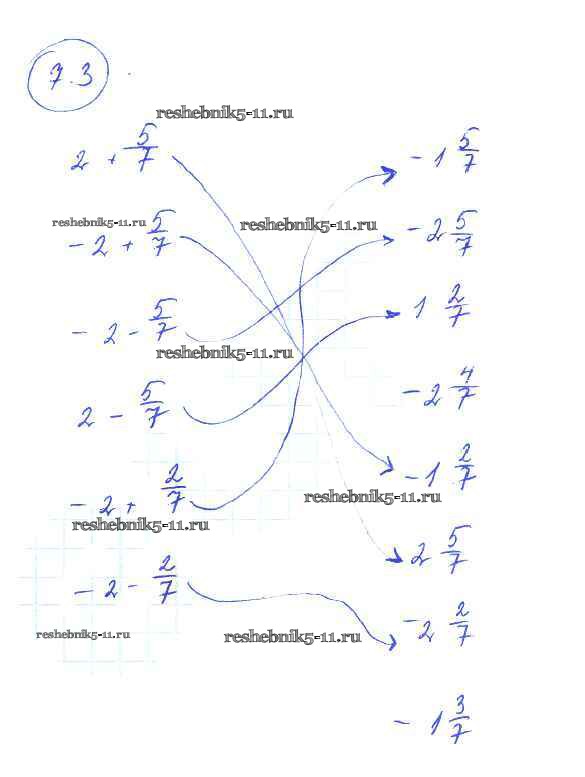 7.3
reshebnik5-11.ru
2 + 5/7
- 1 5/7
reshebnik5-11.ru
reshebnik5-11.ru
- 2 + 5/7
- 2 5/7
- 2 - 5/7
1 2/7
reshebnik5-11.ru
2 - 5/7
- 2 4/7
- 2 + 2/7
- 1 2/7
reshebnik5-11.ru
reshebnik5-11.ru
2 5/7
- 2 - 2/7
- 2 2/7
reshebnik5-11.ru
reshebnik5-11.ru
- 1 3/7